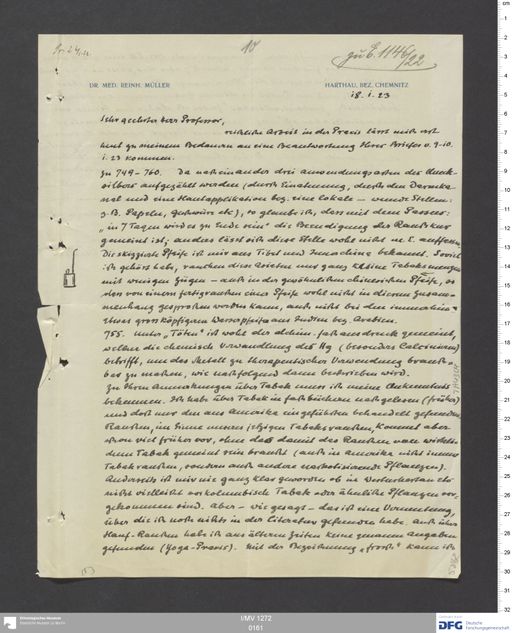 10
zu E. 1146/22
DR. MED. REINH. MÜLLER
HARTHAU, BEZ. CHEMNITZ
18. I. 23
Sehr geehrter Herr Professor,
reichliche Arbeit in der Praxis lässt mich erst
heut zu meinem Bedauern an eine Beantwortung Ihrer Briefe v. 9.-10.
I. 23 kommen.
Zu 749-760. Da nacheinander drei Anwendungsarten des Queck-
silbers aufgezählt werden (durch Einatmung, durch den Darmka-
nal und eine Hautapplikation bez. eine lokale - wunde Stellen:
z.B. Papeln, Geschwüre etc), so glaube ich, dass mit dem Passus:
"in 7 Tagen wird es zu Ende sein" die Beendigung der Rauchkur
gemeint ist; anders lässt sich diese Stelle wohl nicht m. E. auffassen.
Die skizzierte Pfeife ist mir aus Tibet und Innerchina bekannt. Soviel
ich gehört habe, rauchen diese Asiaten nur ganz kleine Tabaksmengen
mit wenigen Zügen - auch in der gewöhnlichen chinesischen Pfeife, so
dass von einem fertigrauchen einer Pfeife wohl nicht in diesem Zusam-
menhang gesprochen werden kann, auch nicht bei den
grossköpfigen Wasserpfeifen aus Indien bez. Arabien.
755. Unter "Töten" ist wohl der alchim. Fachausdruck gemeint,
welcher die chemische Verwandlung des Hg (besonders Calcinieren)
betrifft, um das Metall zu therapeutischer Verwendung brauch-
bar zu machen, wie nachfolgend dann beschrieben wird.
Zu Ihren Anmerkungen über Tabak muss ich meine Unkenntnis
bekennen. Ich habe über Tabak in Fachbüchern nachgelesen (früher)
und dort nur den aus Amerika eingeführten behandelt gefunden
Rauchen, im Sinne unseres jetzigen Tabakrauchens, kommt aber
schon viel früher vor, ohne dass damit das Rauchen von wirklich-
dem Tabak gemeint sein braucht (auch in Amerika nicht immer
Tabakrauchen, sondern auch andere narkotisierende Pflanzen).
Anderseits ist mir nie ganz klar geworden ob in Vorderostasien etc
nicht vielleicht vorkolumbisch Tabak oder ähnliche Pflanzen vor-
gekommen sind. Aber - wie gesagt - das ist eine Vermutung,
über die ich noch nichts in der Literatur gefunden habe. Auch über
Hanf-Rauchen habe ich aus älteren Zeiten keine genauen Angaben
gefunden (Yoga-Praxis). Mit der Bezeichnung "frosch" kann ich
Ethnologisches Museum
I/MV 1272
0161
DFG
Deutsche
Forschungsgemeinschaft